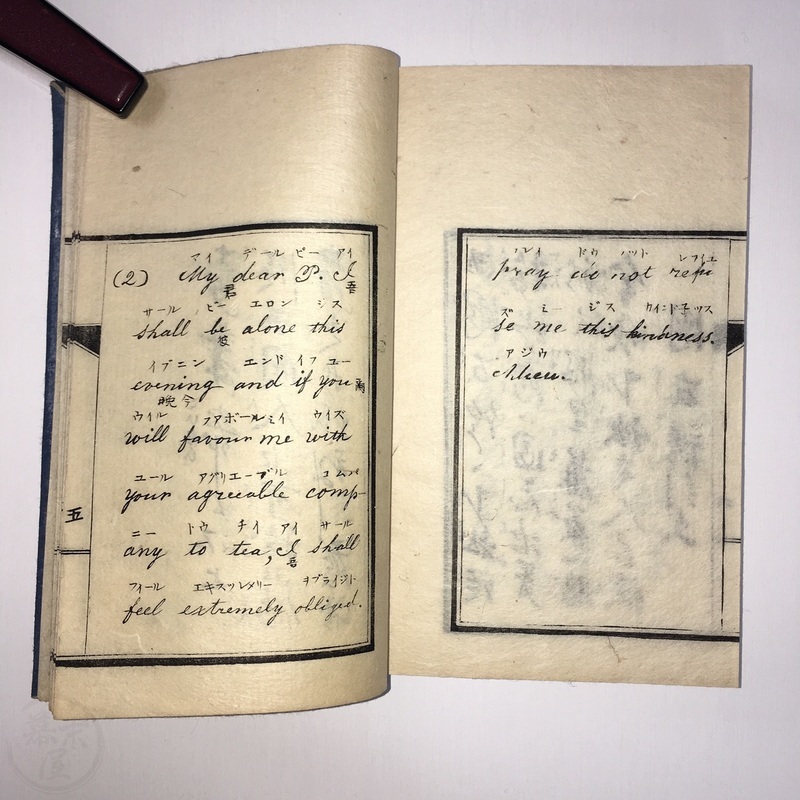 マイ デール ピー アイ
(2) My dear P. I
君 吾
サール ビー エロン ジス
shall be alone this
イブニン エンド イフ ユー
evening and if you
晩今
ウイル ファボール ミイ ウイズ
will favour me with
ユール アグリエーブル コムパ
your agreeable comp-
ニー トウ チイ アイ サール
any to tea, I shall
吾
フィール エキスツレメリー ヲブライジト
feel extremely obliged.
五
プレイ ドウ ナット レフイユ
pray do not refu
ズ ミー ジス カインド子ツス
se me this kindness.
アジウ
Adieu.